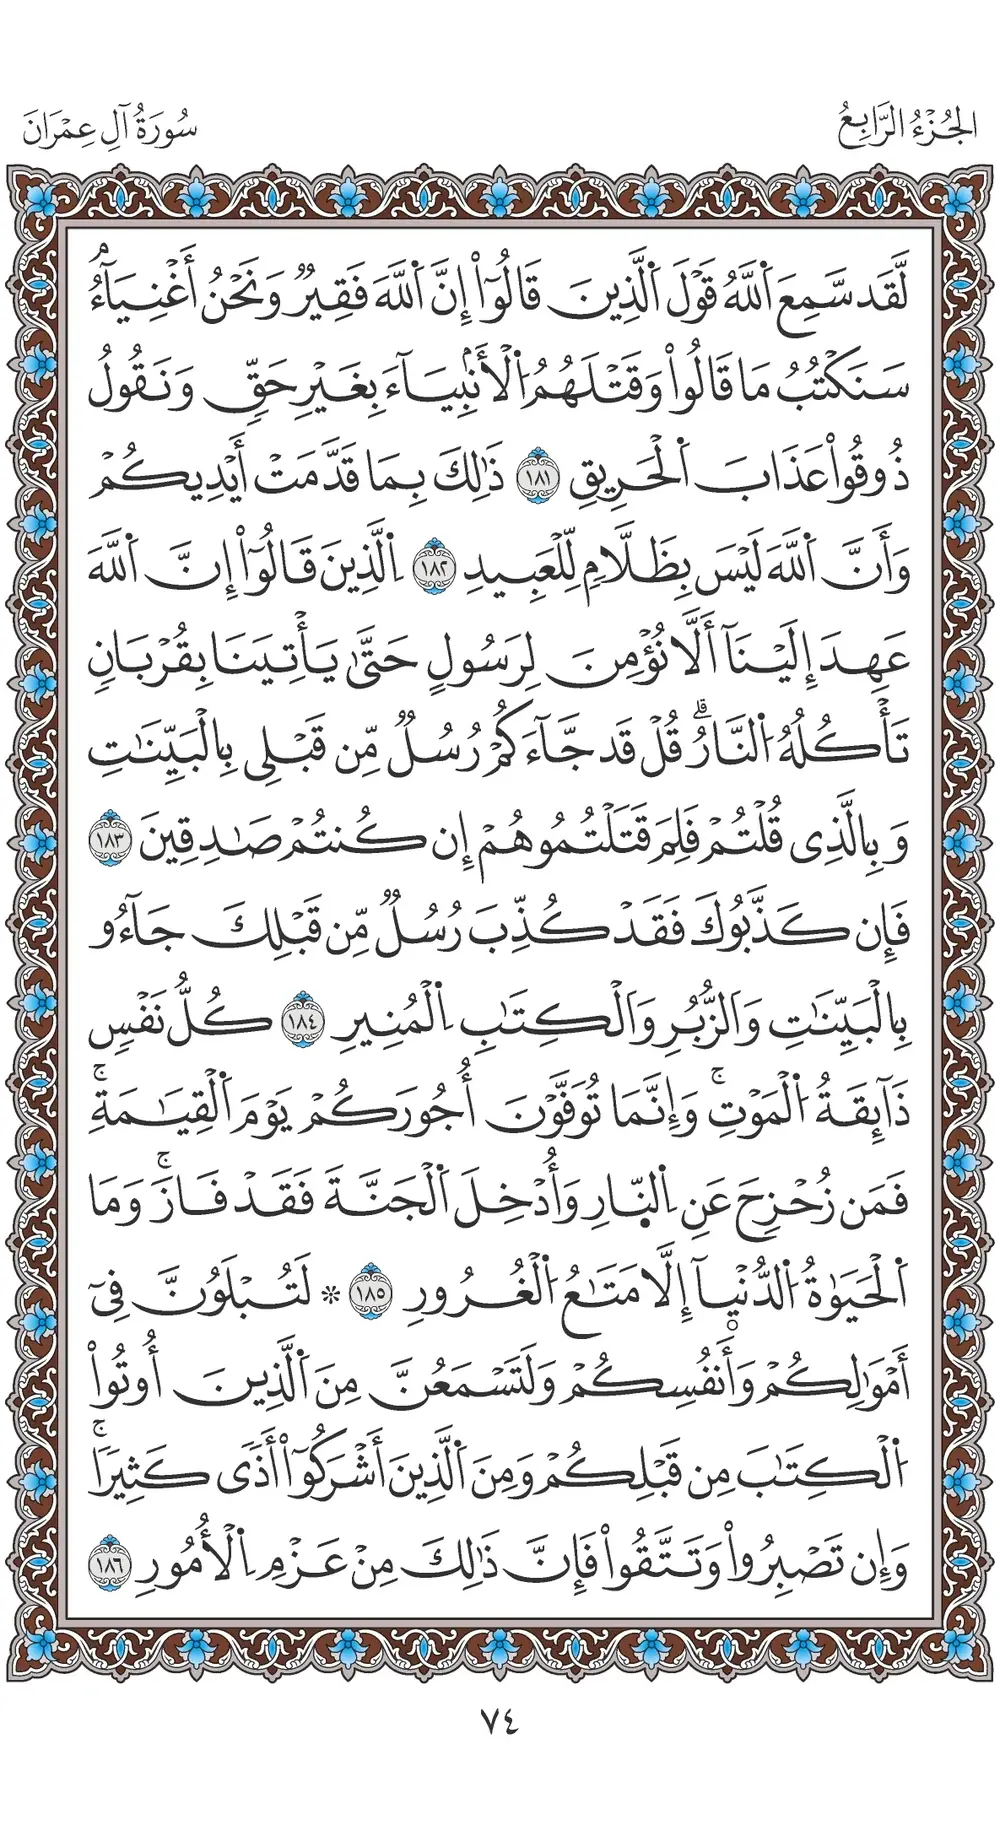 الجُزْءُ الرَّابِعُ
سُورَةُ آلِ عِمْرَانَ
لَّقَدْ سَمِعَ ٱللَّهُ قَوْلَ ٱلَّذِينَ قَالُوٓا۟ إِنَّ ٱللَّهَ فَقِيرٌ وَنَحْنُ أَغْنِيَآءُ ۘ
سَنَكْتُبُ مَا قَالُوا۟ وَقَتْلَهُمُ ٱلْأَنۢبِيَآءَ بِغَيْرِ حَقٍّ وَنَقُولُ
ذُوقُوا۟ عَذَابَ ٱلْحَرِيقِ ١٨١ ذَٰلِكَ بِمَا قَدَّمَتْ أَيْدِيكُمْ
وَأَنَّ ٱللَّهَ لَيْسَ بِظَلَّامٍ لِّلْعَبِيدِ ١٨٢ ٱلَّذِينَ قَالُوٓا۟ إِنَّ ٱللَّهَ
عَهِدَ إِلَيْنَآ أَلَّا نُؤْمِنَ لِرَسُولٍ حَتَّىٰ يَأْتِيَنَا بِقُرْبَانٍ
تَأْكُلُهُ ٱلنَّارُ ۗ قُلْ قَدْ جَآءَكُمْ رُسُلٌ مِّن قَبْلِى بِٱلْبَيِّنَٰتِ
وَبِٱلَّذِى قُلْتُمْ فَلِمَ قَتَلْتُمُوهُمْ إِن كُنتُمْ صَٰدِقِينَ ١٨٣
فَإِن كَذَّبُوكَ فَقَدْ كُذِّبَ رُسُلٌ مِّن قَبْلِكَ جَآءُو
بِٱلْبَيِّنَٰتِ وَٱلزُّبُرِ وَٱلْكِتَٰبِ ٱلْمُنِيرِ ١٨٤ كُلُّ نَفْسٍ
ذَآئِقَةُ ٱلْمَوْتِ ۗ وَإِنَّمَا تُوَفَّوْنَ أُجُورَكُمْ يَوْمَ ٱلْقِيَٰمَةِ ۖ
فَمَن زُحْزِحَ عَنِ ٱلنَّارِ وَأُدْخِلَ ٱلْجَنَّةَ فَقَدْ فَازَ ۗ وَمَا
ٱلْحَيَوٰةُ ٱلدُّنْيَآ إِلَّا مَتَٰعُ ٱلْغُرُورِ ١٨٥ * لَتُبْلَوُنَّ فِىٓ
أَمْوَٰلِكُمْ وَأَنفُسِكُمْ وَلَتَسْمَعُنَّ مِنَ ٱلَّذِينَ أُوتُوا۟
ٱلْكِتَٰبَ مِن قَبْلِكُمْ وَمِنَ ٱلَّذِينَ أَشْرَكُوٓا۟ أَذًى كَثِيرًا ۚ
وَإِن تَصْبِرُوا۟ وَتَتَّقُوا۟ فَإِنَّ ذَٰلِكَ مِنْ عَزْمِ ٱلْأُمُورِ ١٨٦
٧٤